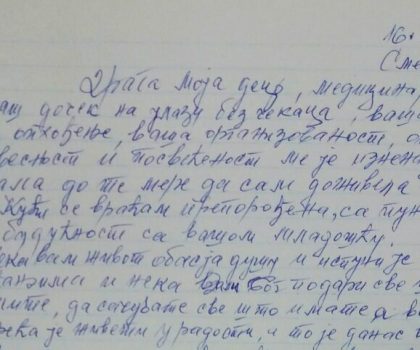 16.
Сме
Драга моја децо, медицина,
ваш дочек на улазу без чекања, ваше
опхођење, ваша организованост,
весност и посвећеност ме је изнена
дала до те мере да сам доживела
Кући се враћам препорођена, са пун
будућност са вашом младошћу.
ка вам живот обасја душу и испуни је
и нека Вам Бог подари све
лите, да сачувате све што имате а в
река је живети у радости, и то је данас